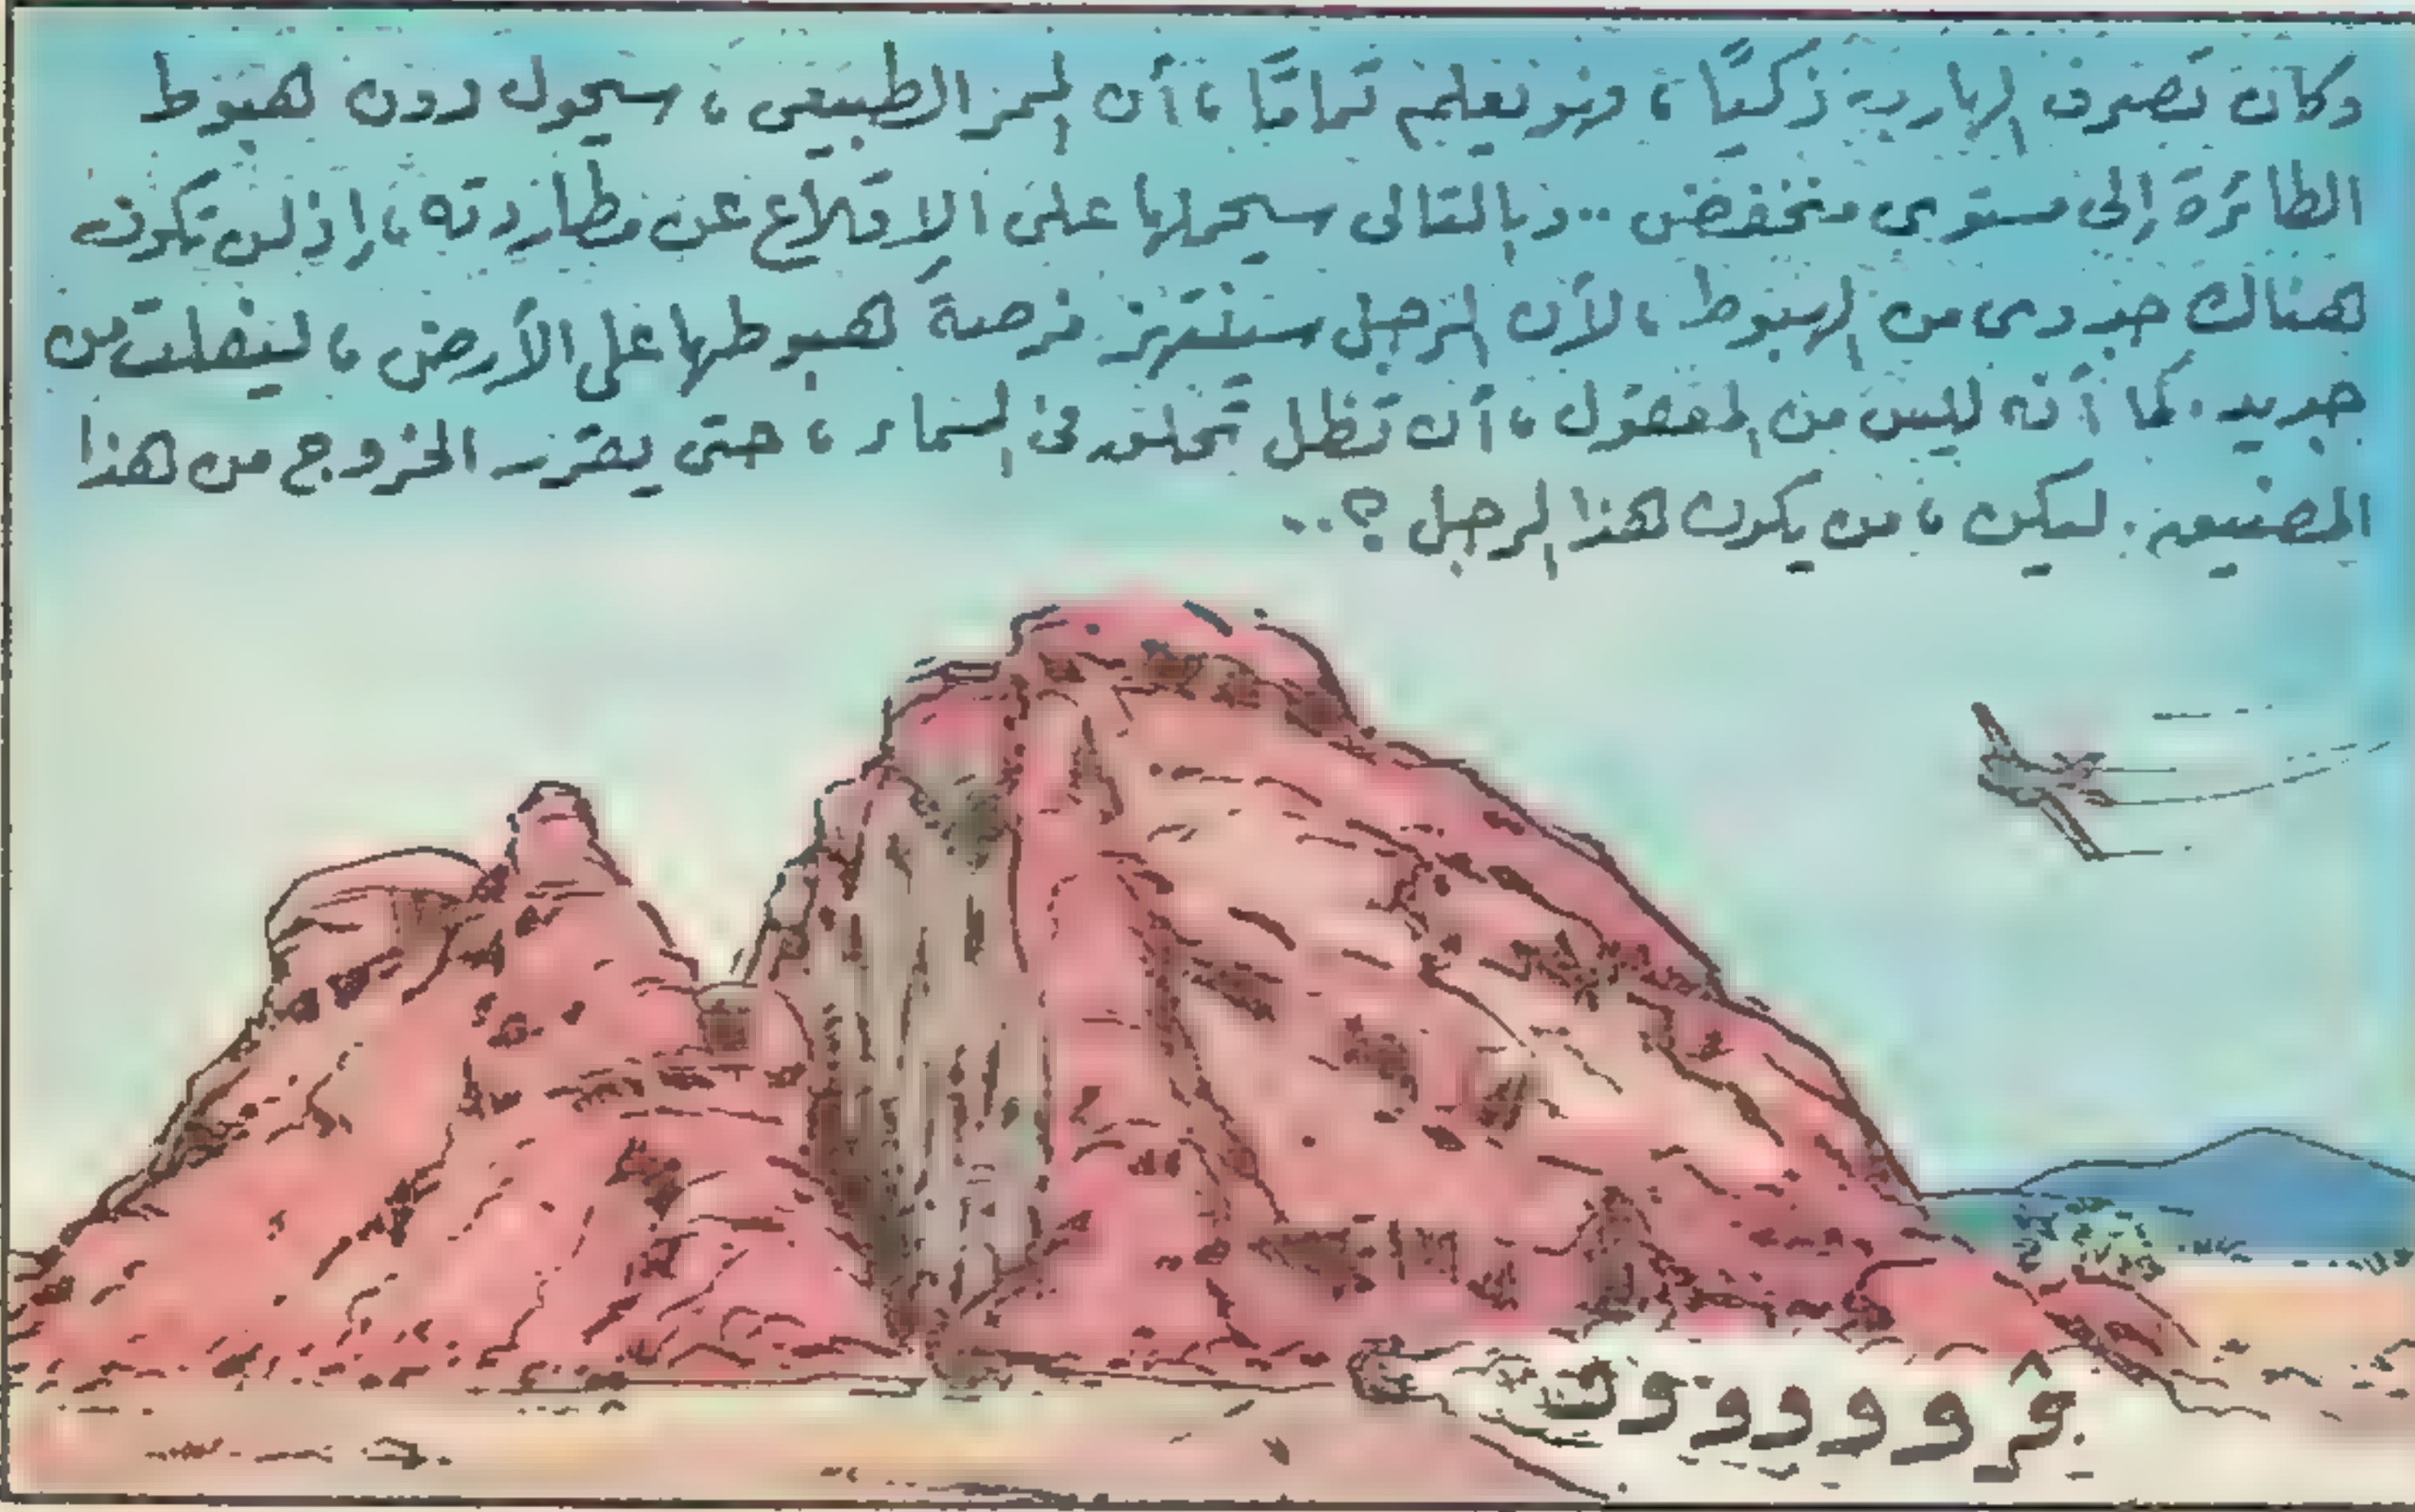 وكان تصرف الهارب ذكيًا ، فهو يعلم تمامًا ، أن الممر الطبيعى ، سيحول دون هبوط
الطائرة إلى مستوى منخفض .. وبالتالى سيحملها على الاقلاع عن مطاردته ، إذ لن تكون
هناك جدوى من الهبوط ، لأن الرجل سينتهز فرصة هبوطها على الأرض ، ليفلت من
جديد . كما أنه ليس من المعقول ، أن تظل تحلق فى السماء ، حتى يقرر الخروج من هذا
المضيق . لكن ، من يكون هذا الرجل ؟ ..